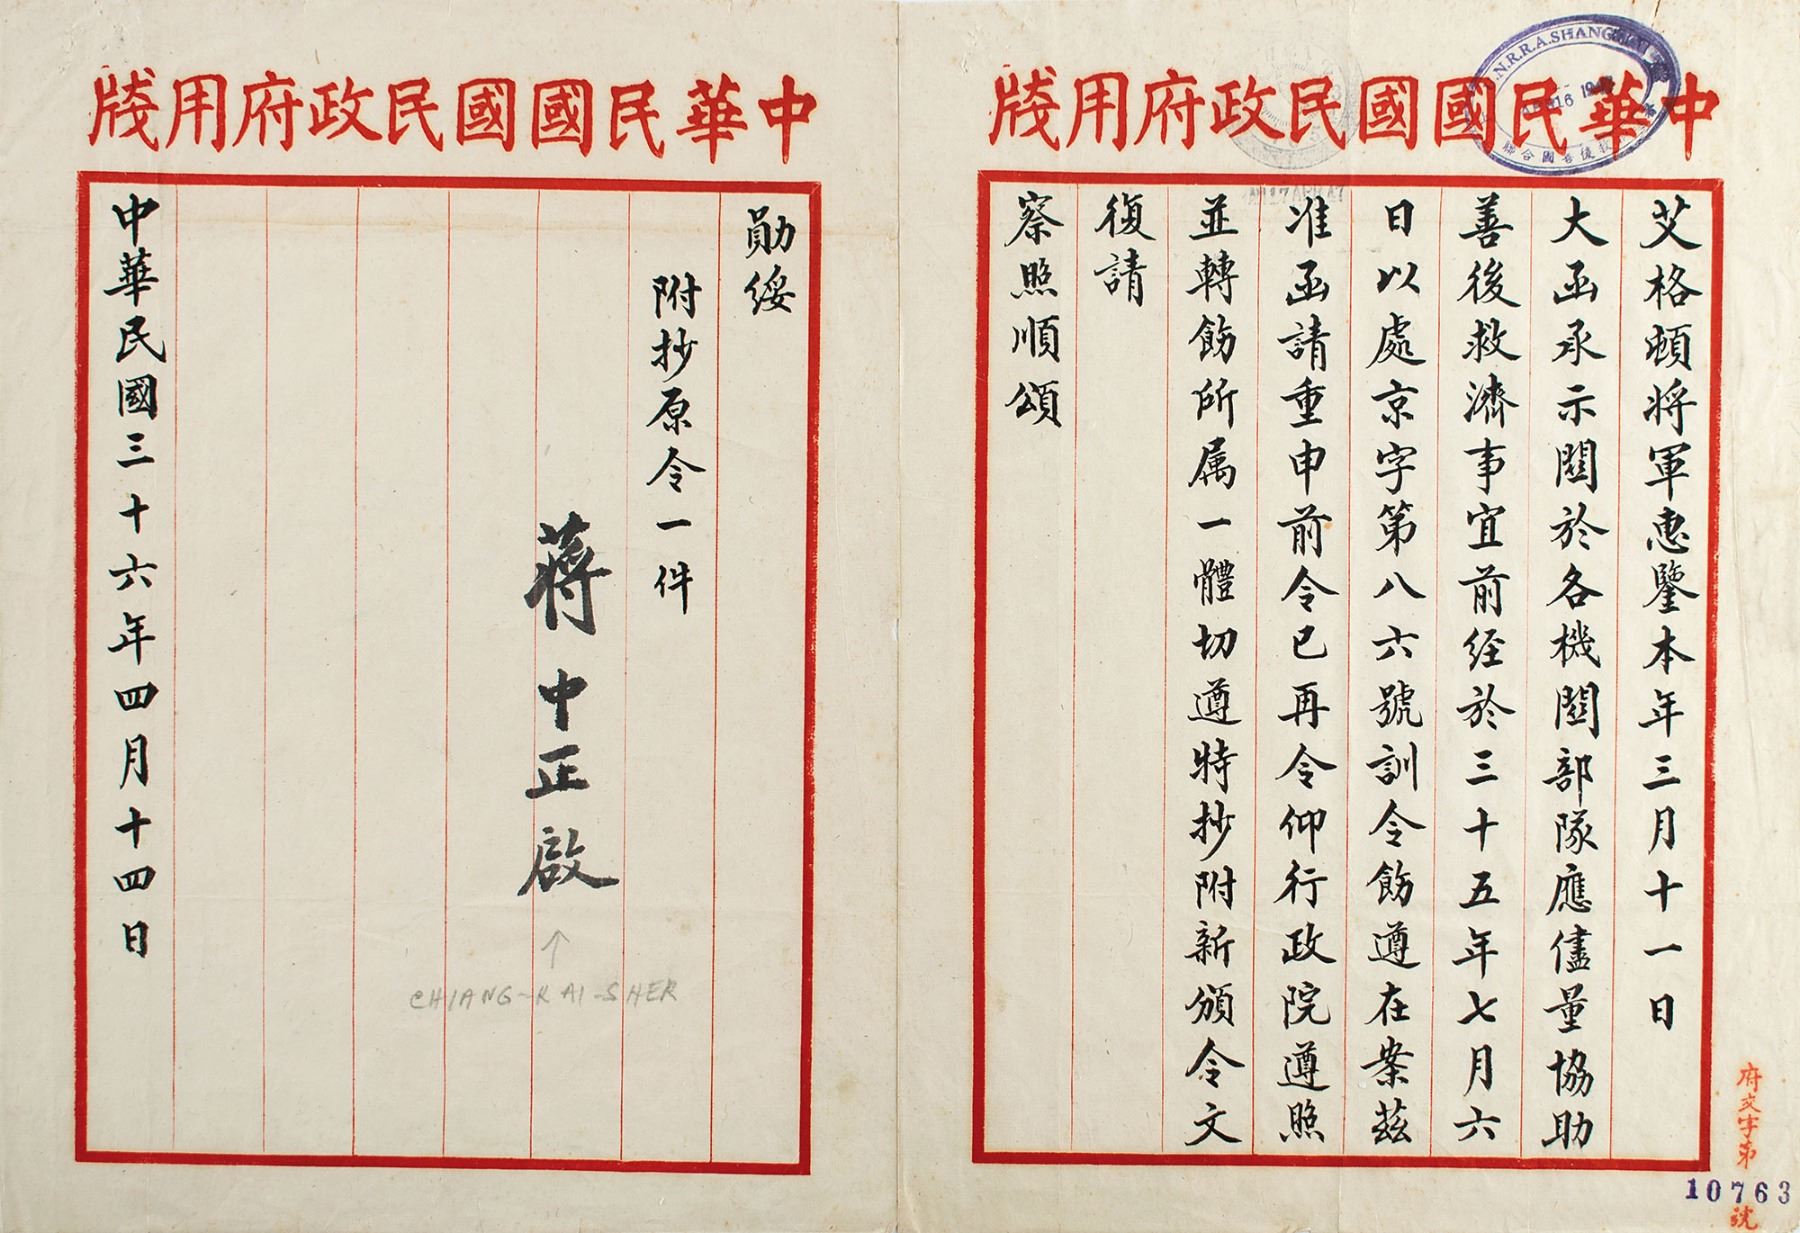 中華民國國民政府用牋
艾格頓將軍惠鑒本年三月十一日
大函承示關於各機關部隊應儘量協助
善後救濟事宜前經於三十五年七月六
日以處京字第八六號訓令飭遵在案茲
准函請重申前令已再令仰行政院遵照
並轉飭所属一體切遵特抄附新頒令文
復請
察照順頌
府文字第
10763
號
中華民國國民政府用牋
勛綏
附抄原令一件
蔣中正啟
CHIANG-KAI-SHEK
中華民國三十六年四月十四日
N.R.R.A. SHANGHAI
16 19
聯合國善後救